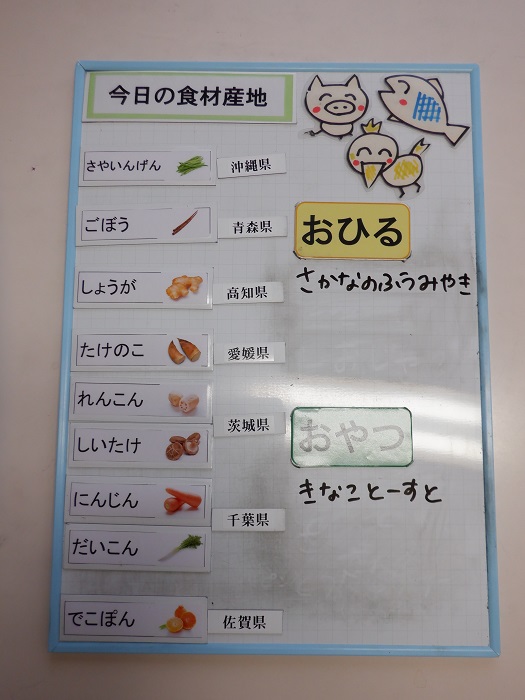 今日の食材産地
さやいんげん 沖縄県
ごぼう 青森県
しょうが 高知県
たけのこ 愛媛県
れんこん
茨城県
しいたけ
にんじん
千葉県
だいこん
でこぽん 佐賀県
おひる
さかなのふうみやき
おやつ
きなことーすと